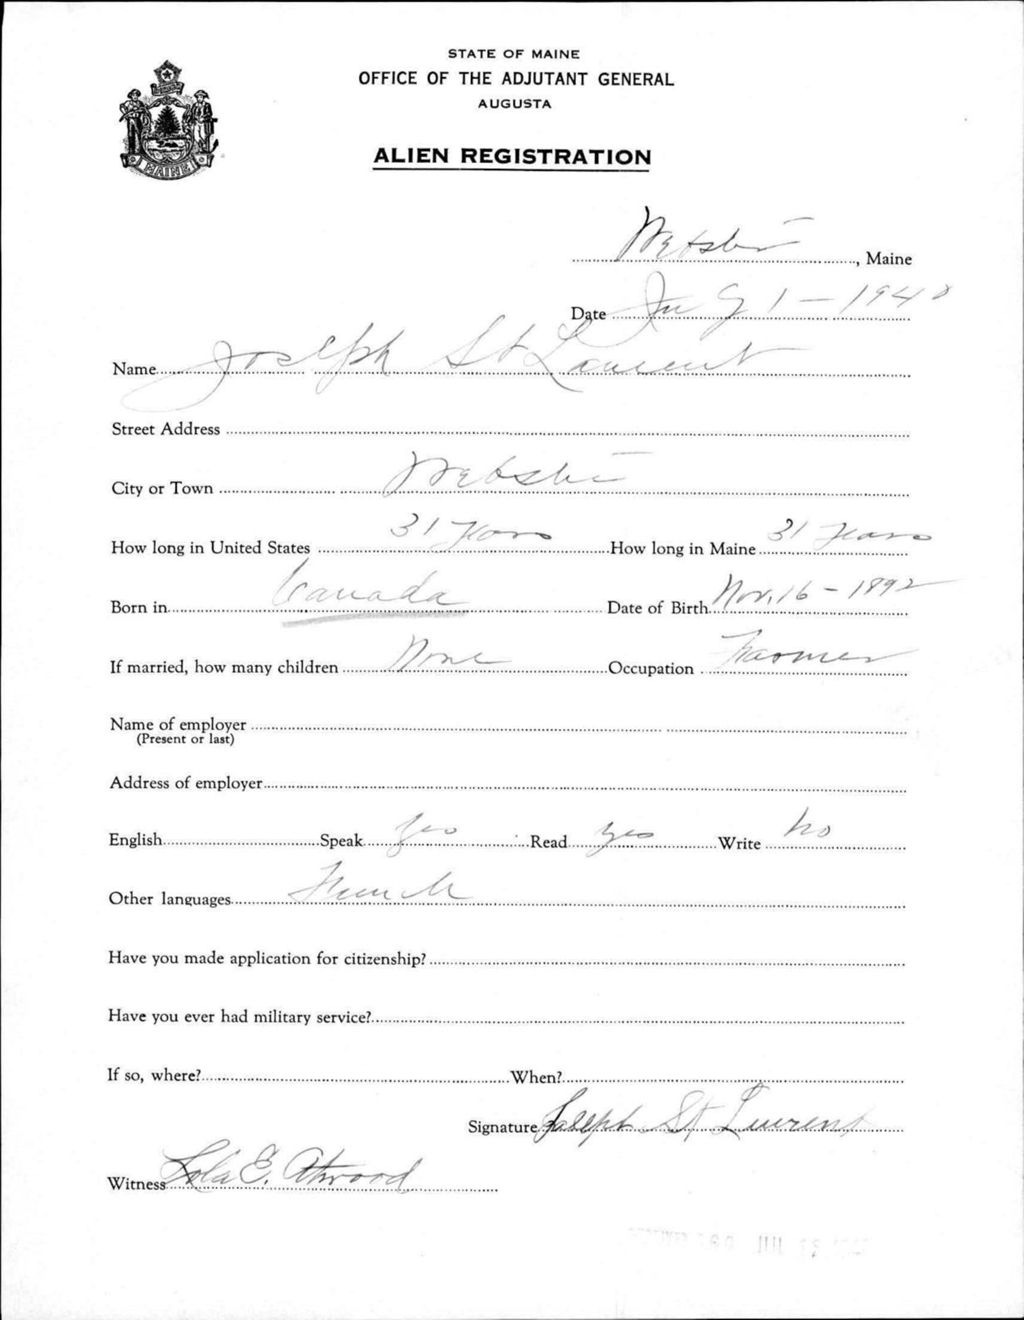 STATE OF MAINE
OFFICE OF THE ADJUTANT GENERAL
AUGUSTA
MAINE
ALIEN REGISTRATION
Webster, Maine
Date July 1 - 1940
Name Joseph St Laurent
Street Address
City or Town Webster
How long in United States 31 Years How long in Maine 31 Years
Born in Canada Date of Birth Nov. 16 - 1892
If married, how many children None Occupation Farmer
Name of employer
(Present or last)
Address of employer
English Speak yes Read yes Write no
Other languages French
Have you made application for citizenship?
Have you ever had military service?
If so, where? When?
Signature Joseph St Laurent
Witness Lola E. Atwood
JUL